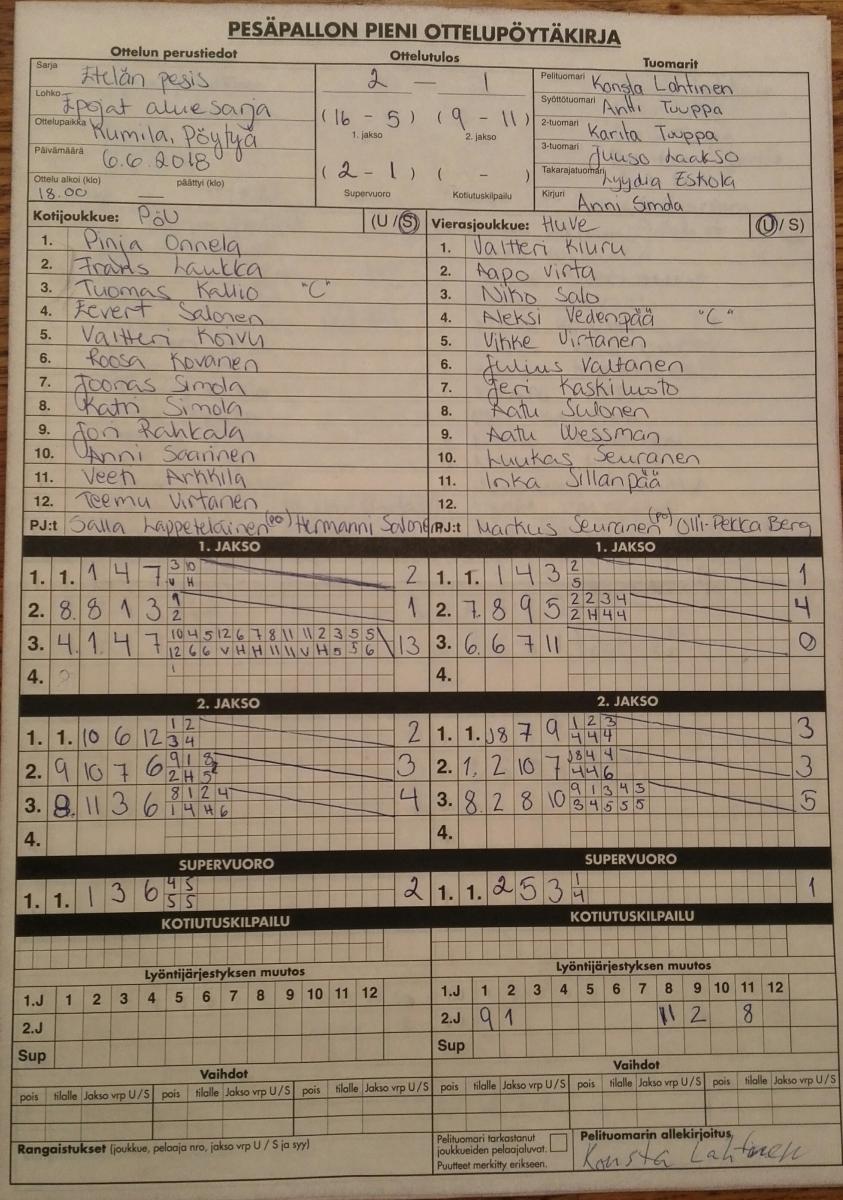 PESÄPALLON PIENI OTTELUPÖYTÄKIRJA
Ottelun perustiedot
Sarja Etelän pesis
Lohko Epojat aluesarja
Ottelupaikka Kumila, Pöytyä
Päivämäärä 6.6.2018
Ottelu alkoi (klo) päättyi (klo)
18.00
Ottelutulos
2 — 1
(16 - 5) (9 - 11)
1. jakso 2. jakso
(2 - 1) ( - )
Supervuoro Kotiutuskilpailu
Tuomarit
Pelituomari Konsta Lahtinen
Syöttötuomari Antti Tuuppa
2-tuomari Karita Tuuppa
3-tuomari Juuso Laakso
Takarajatuomari Lyydia Eskola
Kirjuri Anni Simola
Kotijoukkue: PöU (U / S)
1. Pinja Onnela
2. Frans Laukka
3. Tuomas Kallio "C"
4. Eevert Salonen
5. Valtteri Koivu
6. Roosa Kovanen
7. Joonas Simola
8. Katri Simola
9. Joni Rahkala
10. Anni Saarinen
11. Veeti Arkkila
12. Teemu Virtanen
PJ:t Salla Lappeteläinen (PO) Hermanni Salonen
Vierasjoukkue: HuVe (U / S)
1. Valtteri Kiuru
2. Aapo Virta
3. Niko Salo
4. Aleksi Vedenpää "C"
5. Vikke Virtanen
6. Julius Valtanen
7. Jeri Kaskiluoto
8. Aatu Salonen
9. Aatu Wessman
10. Luukas Seuranen
11. Inka Sillanpää
12.
PJ:t Markus Seuranen (PO) Olli-Pekka Berg
1. JAKSO
1. 1. 1 4 7 3 10 2
V H
2. 8. 8 1 3 9 1
2
3. 4. 1 4 7 10 4 5 12 6 7 8 11 11 2 3 5 5 13
12 6 6 V H H 11 11 V H 5 5 6
4. 1
1. JAKSO
1. 1. 1 4 3 2 1
5
2. 7. 8 9 5 2 2 3 4 4
2 H 4 4
3. 6. 6 7 11 0
4.
2. JAKSO
1. 1. 10 6 12 1 2 2
3 4
2. 9 10 7 6 9 1 8 3
2 H 5
3. 8. 11 3 6 8 1 2 4 4
1 4 H 6
4.
2. JAKSO
1. 1. 8 7 9 1 2 3 3
4 4 4
2. 1. 2 10 7 8 4 4 3
4 4 6
3. 8. 2 8 10 9 1 3 4 5 5
3 4 5 5 5
4.
SUPERVUORO
1. 1. 1 3 6 4 5 2
5 5
SUPERVUORO
1. 1. 2 5 3 1 1
4
KOTIUTUSKILPAILU
KOTIUTUSKILPAILU
Lyöntijärjestyksen muutos
1.J 1 2 3 4 5 6 7 8 9 10 11 12
2.J
Sup
Lyöntijärjestyksen muutos
1.J 1 2 3 4 5 6 7 8 9 10 11 12
2.J 9 1 11 2 8
Sup
Vaihdot
pois tilalle Jakso vrp U / S pois tilalle Jakso vrp U / S pois tilalle Jakso vrp U / S
Vaihdot
pois tilalle Jakso vrp U / S pois tilalle Jakso vrp U / S pois tilalle Jakso vrp U / S
Rangaistukset (joukkue, pelaaja nro, jakso vrp U / S ja syy)
Pelituomari tarkastanut
joukkueiden pelaajaluvat.
Puutteet merkitty erikseen.
Pelituomarin allekirjoitus
Konsta Lahtinen